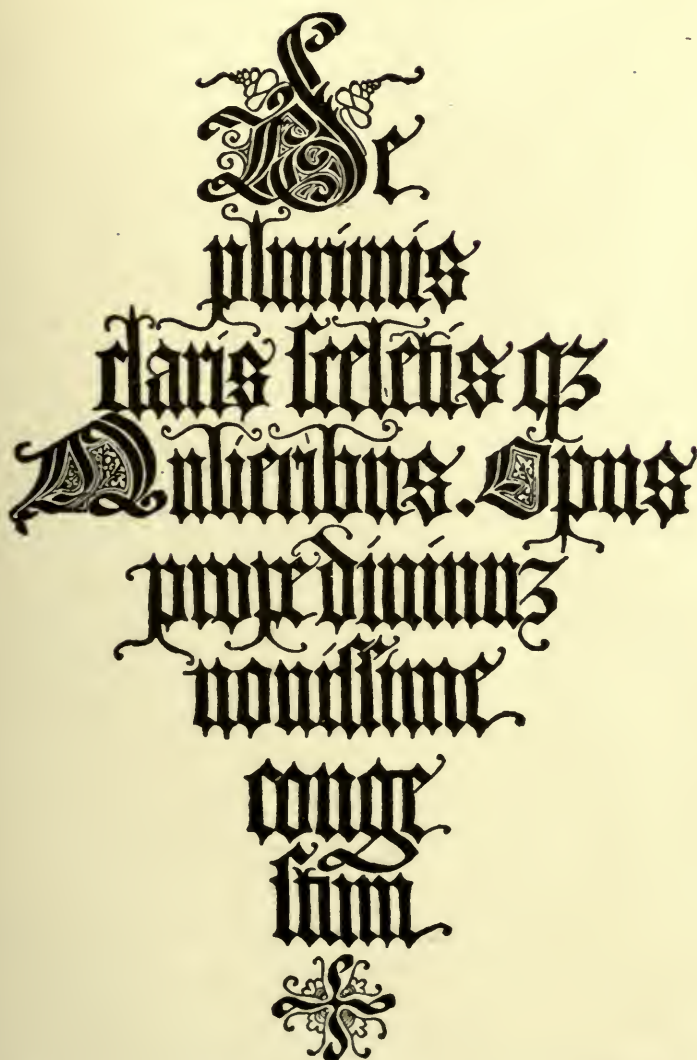 De
plurimis
claris ſceletis qꝫ
Mulieribus. Opus
prope diuinuꝫ
nouiſſime
conge
ſtum